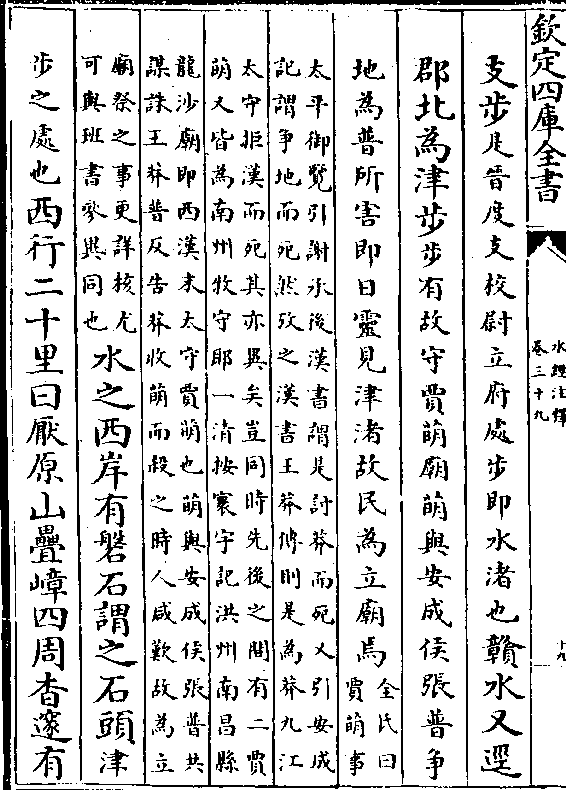 欽定四庫全書
水經注釋
卷三十九
十九
支步是晉度支校尉立府處步即水渚也贛水又逕
郡北為津步步有故守賈萌廟萌與安成侯張普爭
地為普所害即日靈見津渚故民為立廟焉全氏曰
賈萌事
太平御覽引謝承後漢書謂是討莽而死又引安成
記謂爭地而死然攷之漢書王莽傳則是為莽九江
太守拒漢而死其亦異矣豈同時先後之間有二賈
萌又皆為南州牧守耶一清按寰宇記洪州南昌縣
龍沙廟即西漢末太守賈萌也萌與安成侯張普共
謀誅王莽普反告莽收萌而殺之時人咸歎故為立
廟祭之事更詳核尤
可與班書參異同也
水之西岸有磐石謂之石頭津
步之處也西行二十里曰厭原山疊嶂四周杳邃有